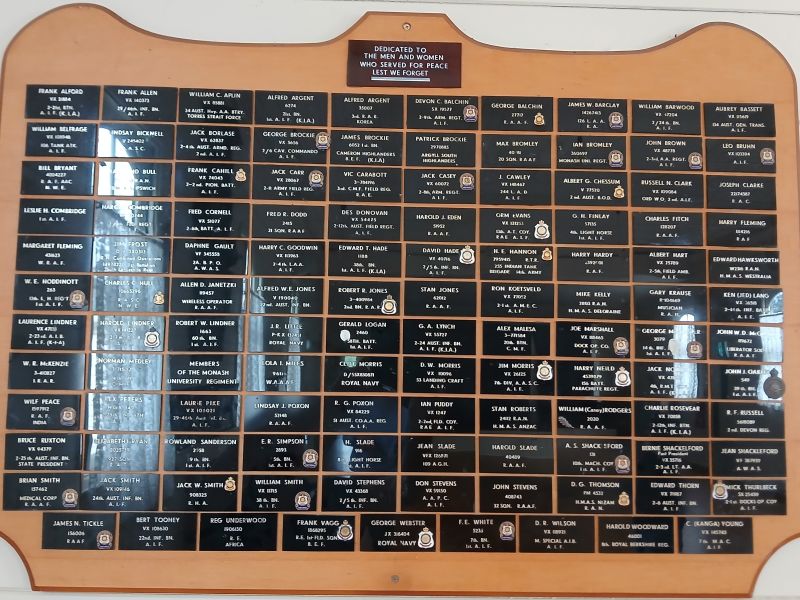 DEDICATED TO
THE MEN AND WOMEN
WHO SERVED FOR PEACE
LEST WE FORGET
FRANK ALFORD
2-21st. BTN.
A. I. F.
FRANK ALLEN
VX 140373
29/46th. INF. BN.
A. I. F.
WILLIAM C. APLIN
VX 85881
TORRES STRAIT FORCE
ALFRED ARGENT
6274
21st. BN.
1st. A. I. F. (K.I.A)
ALFRED ARGENT
35007
3rd. R.A.R.
KOREA
DEVON C. BALCHIN
SX 19577
2-9th. ARM. REGT.
A. I. F.
GEORGE BALCHIN
R. A. A. F.
JAMES W. BARCLAY
A. I. F.
WILLIAM BARWOOD
VX 17204
2/24th. BN.
A. I. F.
AUBREY BASSETT
134 AUST. GEN. TRANS.
A. I. F.
WILLIAM BELFRAGE
106 TANK ATK.
A. I. F.
LINDSAY BICKNELL
V 245402
JACK BORLASE
VX 62837
2-4th AUST. ARMD. REG.
2nd A. I. F.
GEORGE BROCKIE
VX 5616
2/6 CAV. COMMANDO
A. I. F.
JAMES BROCKIE
CAMERONS HIGHLANDERS
B. E. F. (K.I.A)
PATRICK BROCKIE
2970883
ARGYLL SOUTH
HIGHLANDERS
MAX BROMLEY
20 SQN. R.A.A.F
IAN BROMLEY
MONASH UNI. REGT.
JOHN BROWN
VX 48778
2-3rd. A.A. REGT.
A. I. F.
LEO BRUHN
A. I. F.
BILL BRYANT
R. A. F. AAC
M. W. E.
BULL
FRANK CAHILL
VX 76043
2-2nd PION. BATT.
A. I. F.
JACK CARR
VX 28067
2-8 ARMY FIELD REG.
A. I. F.
VIC CARABOTT
3rd. C.M.F. FIELD REG.
R.A.E.
JACK CASEY
VX 60072
2-8th. ARM. REGT.
A. I. F.
J. CAWLEY
VX 148467
244 L. A. D
A. I. F.
ALBERT G. CHESSUM
V 77570
2nd AUST. B.O.D.
RUSSELL N. CLARK
VX 109084
ORD W.O. 2nd. A.I.F.
JOSEPH CLARKE
22174587
R. A. C.
LESLIE H. COMBRIDGE
1st. A. I. F.
COMBRIDGE
FRED CORNELL
VX 5077
2-6th. BATT. A. I. F.
FRED R. DODD
2415
21 SQN. R.A.A.F
DES DONOVAN
VX 54475
2-12th. AUST. FIELD REGT.
A. I. F.
HAROLD J. EDEN
5952
R. A. A. F.
GRM EVANS
13th. A.T. COY.
RAE A. I. F.
G. H. FINLAY
17135
4th. LIGHT HORSE
1st. A. I. F.
CHARLES FITCH
128207
R. A. A. F.
HARRY FLEMING
R A F
MARGARET FLEMING
W. R. A. F.
JIM FROST
DAPHNE GAULT
VF 345558
2A. B.P.O.
A. W. A. S.
HARRY C. GOODWIN
VX 117963
2-4th. I.A.A.
A. I. F.
EDWARD T. HADE
1188
38th. BN.
1st. A. I. F. (K.I.A)
DAVID HADE
VX 40716
2/5 INF. BN.
A. I. F.
N. E. HANNON
255 INDIAN TANK
BRIGADE 14th. ARMY
HARRY HARDY
R. A. A. F.
ALBERT HART
VX 75789
2-56. FIELD AMB.
A. I. F.
EDWARD HAWKESWORTH
R.A.N.
H.M.A.S. WESTRALIA
W. E. HODDINOTT
263
13th. L. H. REGT
1st. A. I. F.
CHARLES C. HULL
H. W. E.
ALLEN D. JANETZKI
119457
WIRELESS OPERATOR
R. A. A. F.
ALFRED W.E. JONES
V 190040
22nd AUST. INF. BN.
ROBERT R. JONES
3-400984
2nd BN. R.A.R.
STAN JONES
62012
R. A. A. F.
RON KOETSVELD
VX 17012
2-1st A. M. E. C.
A. I. F.
MIKE KELLY
R.A.N.
H. M. A. S. DELORAINE
GARY KRAUSE
R-104669
MUSICIAN
R. A. N.
KEN (JED) LANG
2-6 INF. BN.
A. I. F.
LAURENCE LINDNER
VX 47013
2-23rd A.I.B.
A. I. F. (K-I-A)
HAROLD LINDNER
A. I. F.
ROBERT W. LINDNER
1663
60 th. BN.
1st A. I. F.
J.R. LITTLE
ROYAL NAVY
GERALD LOGAN
2460
58th. BATT.
1st. A. I. F.
G.A. LYNCH
VX 53727
2/24 INF. BN.
A. I. F. (K.I.A.)
ALEX MALESA
3-771584
20th. BTN.
C. M. F.
JOE MARSHALL
VX 80465
DOCK OP. CO.
A. I. F.
GEORGE
3079
JOHN W. D.
LIBERATOR SQ
R. A. A. F.
W. R. McKENZIE
3-410827
1. R. A. R.
NORMAN MEDLEY
MEMBERS
OF THE MONASH
UNIVERSITY REGIMENT
LOLA I. MILLS
W.A.A.A.F.
CLIVE MORRIS
D/SSX815871
ROYAL NAVY
D. W. MORRIS
VX 110196
53 LANDING CRAFT
A. I. F.
JIM MORRIS
VX 26125
7th. DIV. A.A.S.C.
A. I. F.
HARRY NEILD
4539079
156 BATT.
PARACHUTE REGT.
JACK NO
JOHN J. OA
39th. BN.
1st. A. I. F.
WILF PEACE
R. A. F.
INDIA
LEX PETERS
LAURIE PIKE
VX 105021
29-46th AUST. INF. BN.
A. I. F.
LINDSAY J. POXON
R. A. A. F.
R. G. POXON
VX 84229
51 AUST. CO.A.A. REG.
A. I. F.
IAN PUDDY
VX 1247
2-2nd. FLD. COY.
RAE A. I. F.
STAN ROBERTS
R.A.N.
H. M. A. S. ANZAC
WILLIAM (Caney) RODGERS
2020
R. A. A. F.
CHARLIE ROSEVEAR
VX 11188
2-12th. INF. BTN.
A. I. F. (K.I.A.)
R. F. RUSSELL
5618089
2nd DEVON REG.
BRUCE RUXTON
VX 94379
2-25 th. AUST INF. BN.
STATE PRESIDENT
ELIZABETH RYAN
ROWLAND SANDERSON
2758
5th. BN.
1st. A. I. F.
E.R. SIMPSON
2893
5th. BN.
1st. A. I. F.
H. SLADE
918
8th LIGHT HORSE
1st. A. I. F.
JEAN SLADE
VFX 126971
109 A.G.H.
HAROLD SLADE
40489
R.A.A.F.
A. S. SHACKLEFORD
131
10th. MACH. COY
1st. A. I. F.
BERNIE SHACKELFORD
Past President
VX 35716
2-23rd. LT. A.A.
A. I. F.
JEAN SHACKLEFORD
A. W. A. S.
BRIAN SMITH
157462
MEDICAL CORP
R. A. A. F.
JACK SMITH
VX 109146
24th. AUST. INF. BN.
A. I. F.
JACK W. SMITH
908325
R. H. A.
WILLIAM SMITH
VX 11715
38 th. BN.
A. I. F.
DAVID STEPHENS
VX 43368
2/5 th. INF. BN.
A. I. F.
DON STEVENS
VX 59150
A. A. P. C.
A. I. F.
JOHN STEVENS
408743
32 SQN. R.A.A.F.
D. G. THOMSON
PM 4532
H.M.A.S. NIZAM
R. A. N.
EDWARD THORN
VX 71187
2-6 AUST. INF. BN
A. I. F.
MICK THURLBECK
SX 25439
2-1st DOCKS OP COY
A. I. F.
JAMES N. TICKLE
156006
RAAF
BERT TOOHEY
VX 108670
22nd. INF. BN.
A. I. F.
REG UNDERWOOD
R. E.
AFRICA
FRANK VAGG
1868295
R.E. 1st FLD. SQN
B. E. F.
GEORGE WEBSTER
JX 316404
ROYAL NAVY
F. E. WHITE
5231
7th. BN.
1st. A. I. F.
D. R. WILSON
VX 118921
M. SPECIAL A.I.B.
A. I. F.
HAROLD WOODWARD
46001
8th. ROYAL BERKSHIRE REG.
C. (KANGA) YOUNG
VX 145743
7 th. M. A. C.
A. I. F.